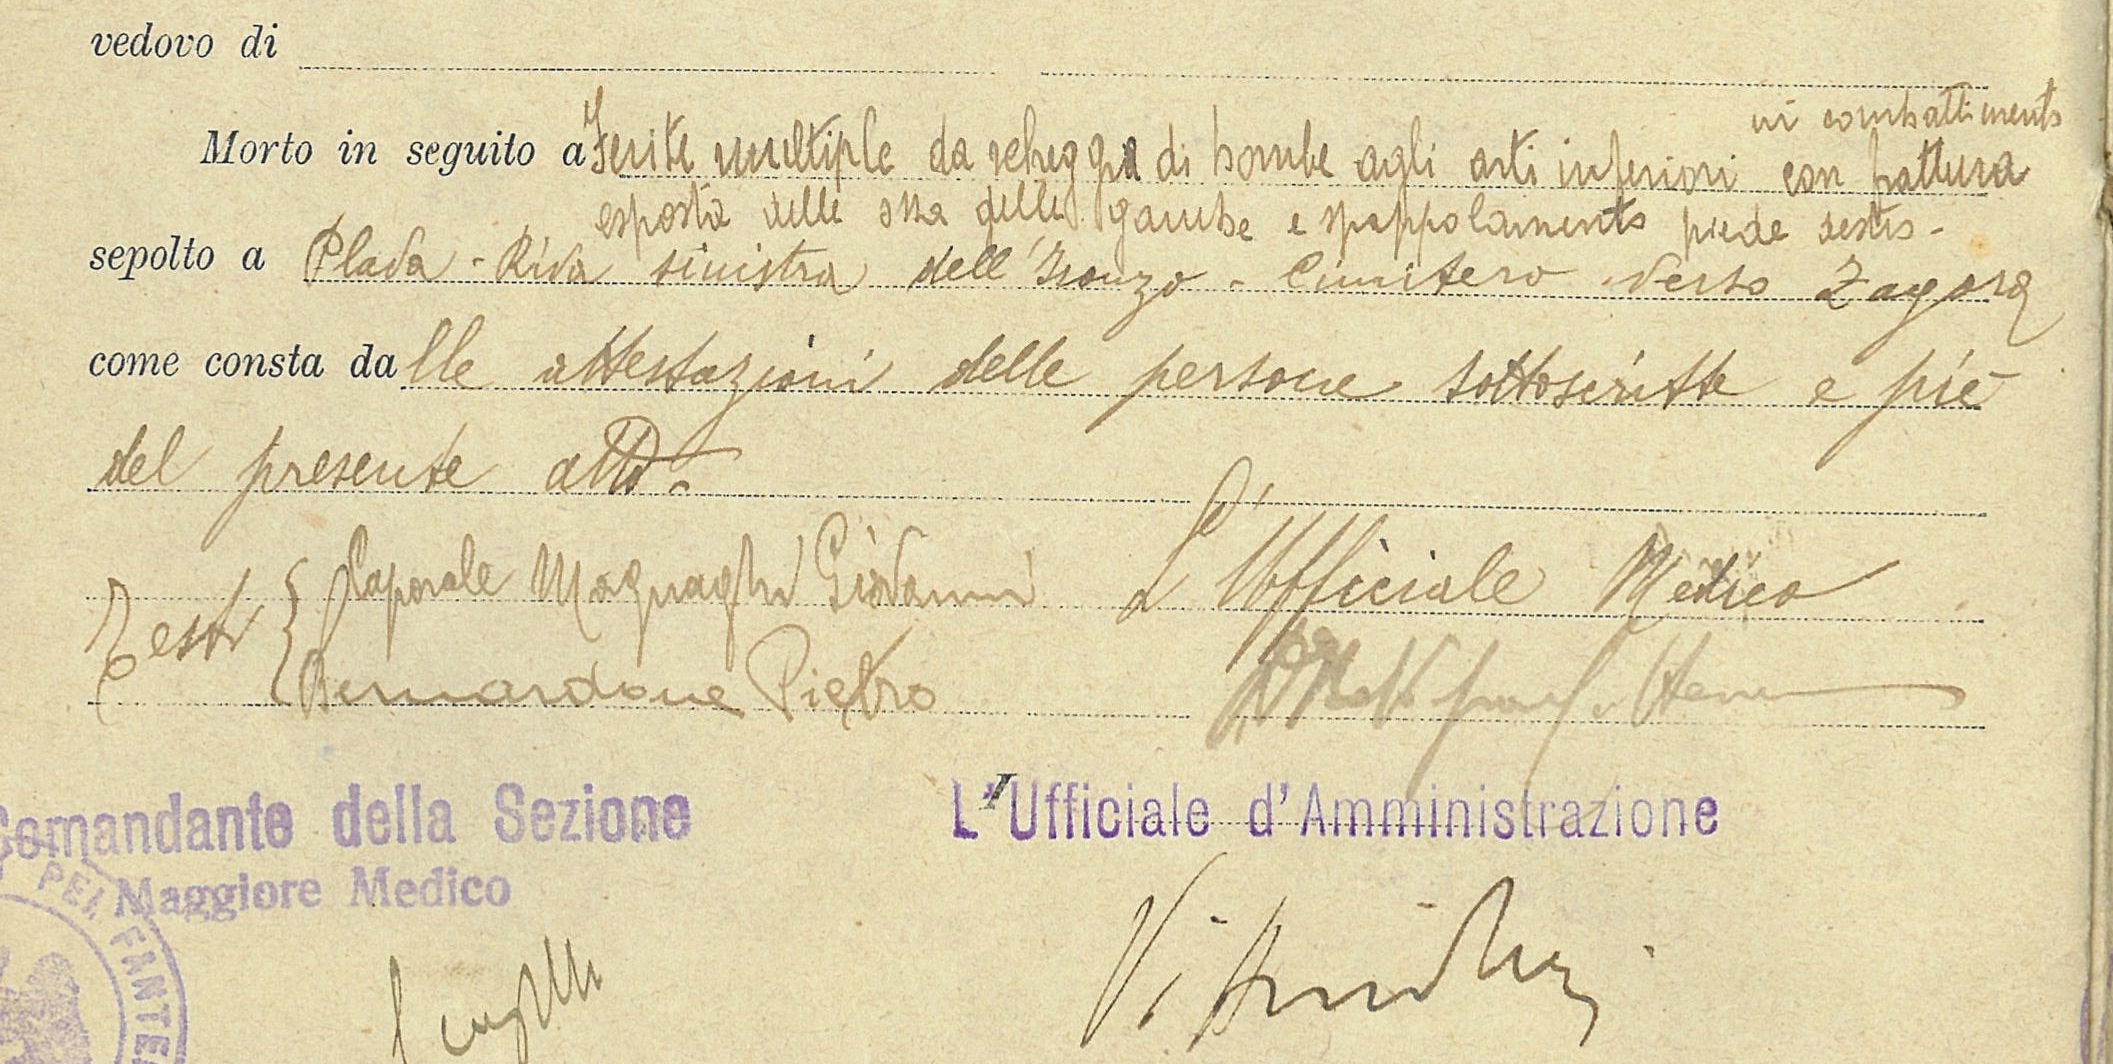 vedovo di
in combattimento
Morto in seguito a Ferite multiple da schegga di bombe agli arti inferiori con frattura
esposta delle ossa delle gambe e spappolamento piede destro -
sepolto a Plava - Riva sinistra dell'Isonzo - Cimitero verso Zagora
come consta dalle attestazioni delle persone sottoscritte e piè
del presente atto.
Testi { Caporale Magnaghi Giovanni L'Ufficiale Medico
Bernardone Pietro
Comandante della Sezione L'Ufficiale d'Amministrazione
Maggiore Medico
PEI FANTE